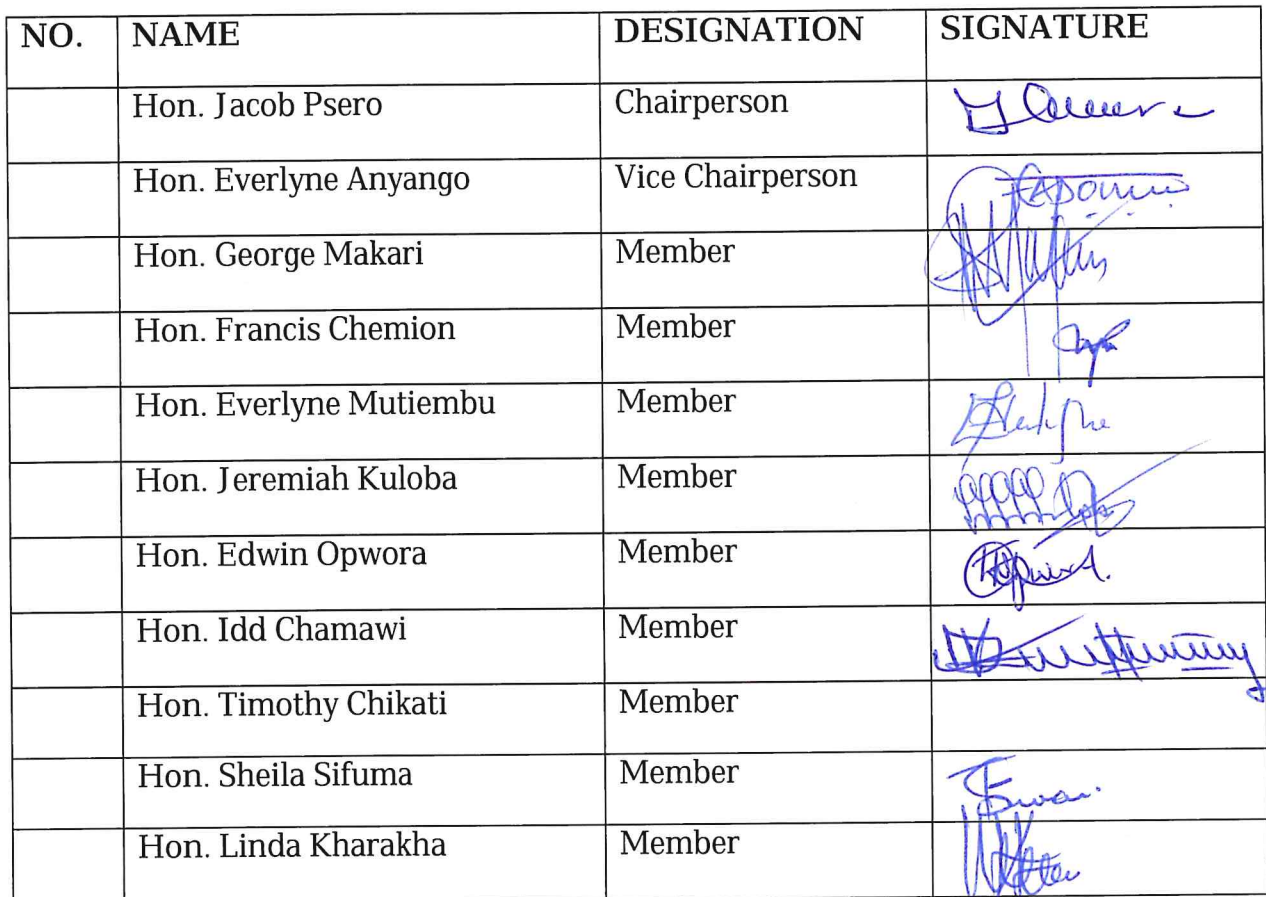 NO. NAME DESIGNATION SIGNATURE
Hon. Jacob Psero Chairperson
Hon. Everlyne Anyango Vice Chairperson
Hon. George Makari Member
Hon. Francis Chemion Member
Hon. Everlyne Mutiembu Member
Hon. Jeremiah Kuloba Member
Hon. Edwin Opwora Member
Hon. Idd Chamawi Member
Hon. Timothy Chikati Member
Hon. Sheila Sifuma Member
Hon. Linda Kharakha Member